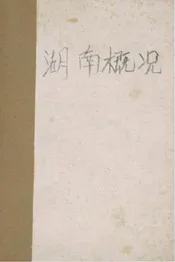 湖南概况